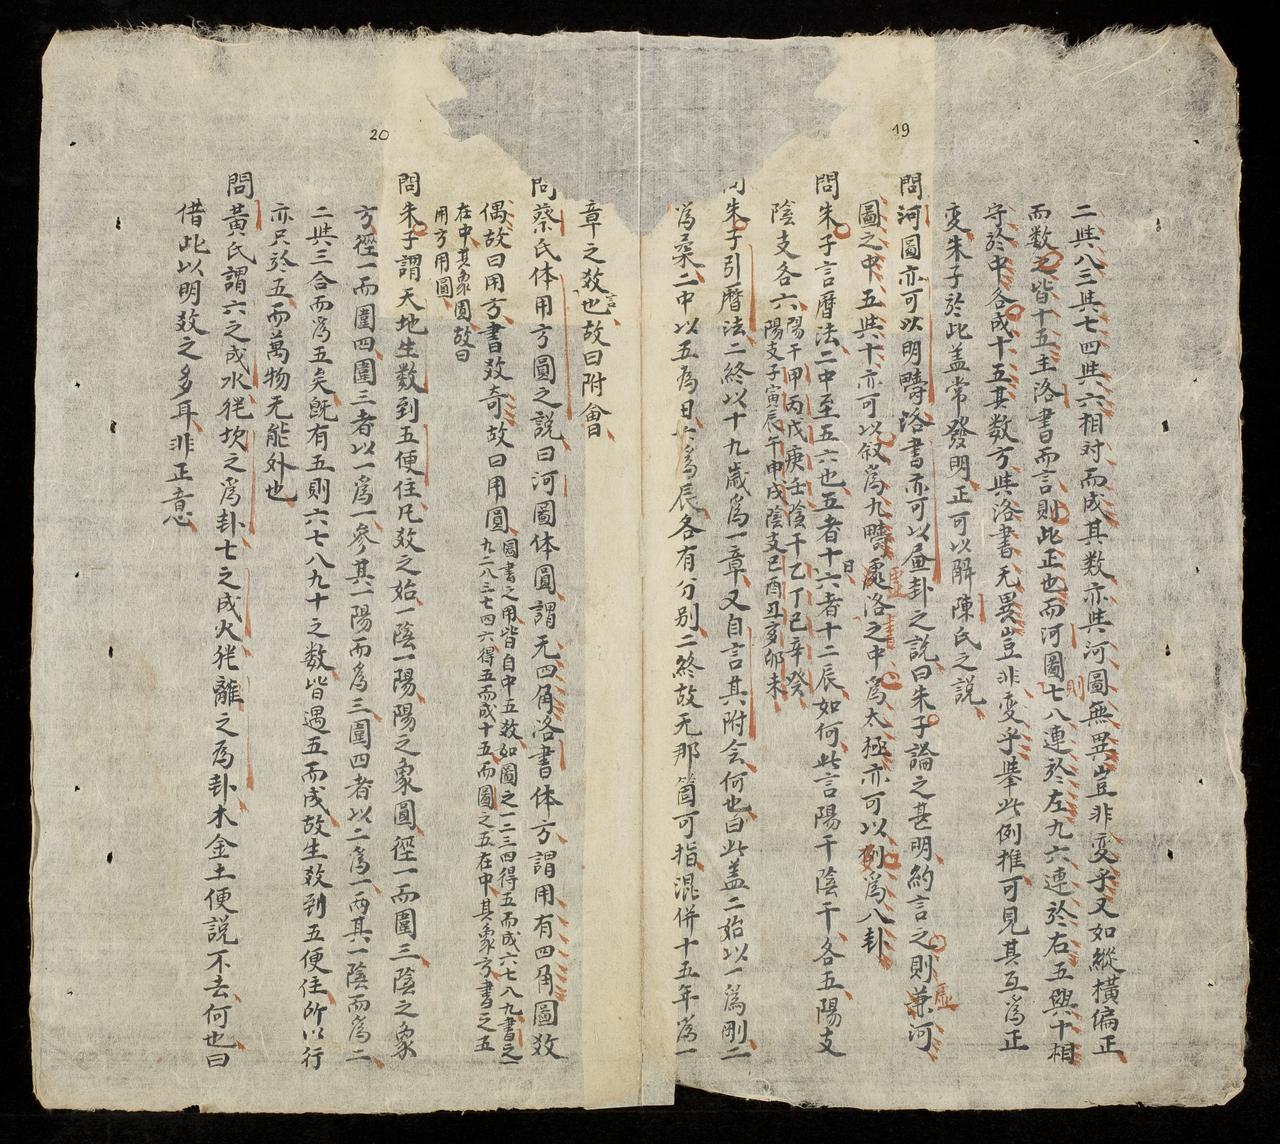 19
二共八三共七四共六相対而成其数亦共河圖無異豈非変乎又如縱橫偏正
而数之皆十五主洛書而言則此正也而河圖七八連於左九六連於右五與十相
則
守於中各成十五其数方共洛書无異豈非変乎举此例推可見其互為正
変朱子於此盖常發明正可以觧陳氏之説
問河圖亦可以明疇洛書亦可以畫卦之説曰朱子論之甚明約言之則兼河
虛
圖之中五共十亦可以叙為九疇虛洛之中為太極亦可以例為八卦
虛書
問朱子言曆法二中至五六也五者十六者十二辰如何此言陽干陰干各五陽支
日
陰支各六陽干甲丙戊庚壬陰干乙丁己辛癸
陽支子寅辰午申戌陰支巳酉丑亥卯未
問朱子引曆法二終以十九歳為一章又自言其附会何也曰此盖二始以一為剛二
為柔二中以五為日六為辰各有分别二終故无那箇可指混併十五年為一
20
章之数也故曰附會
言
問蔡氏体用方圓之説曰河圖体圓謂无四角洛書体方謂用有四角圖数
偶故曰用方書数奇故曰用圓圖書之用皆自中五数如圖之一二三四得五而成六七八九書之一
九二八三七四六得五而成十五而圖之五在中其象方書之五
在中其象圓故曰
用方用圓
問朱子謂天地生数到五便住凡数之始一陰一陽陽之象圓徑一而圍三陰之象
方徑一而圍四圍三者以一為一参其一陽而為三圍四者以二為一両其一陰而為二
二共三合而為五矣既有五則六七八九十之数皆遇五而成故生数到五便住所以行
亦只於五而萬物无能外也
問黃氏謂六之成水猶坎之為卦七之成火猶離之為卦木金土便説不去何也曰
借此以明数之多耳非正意